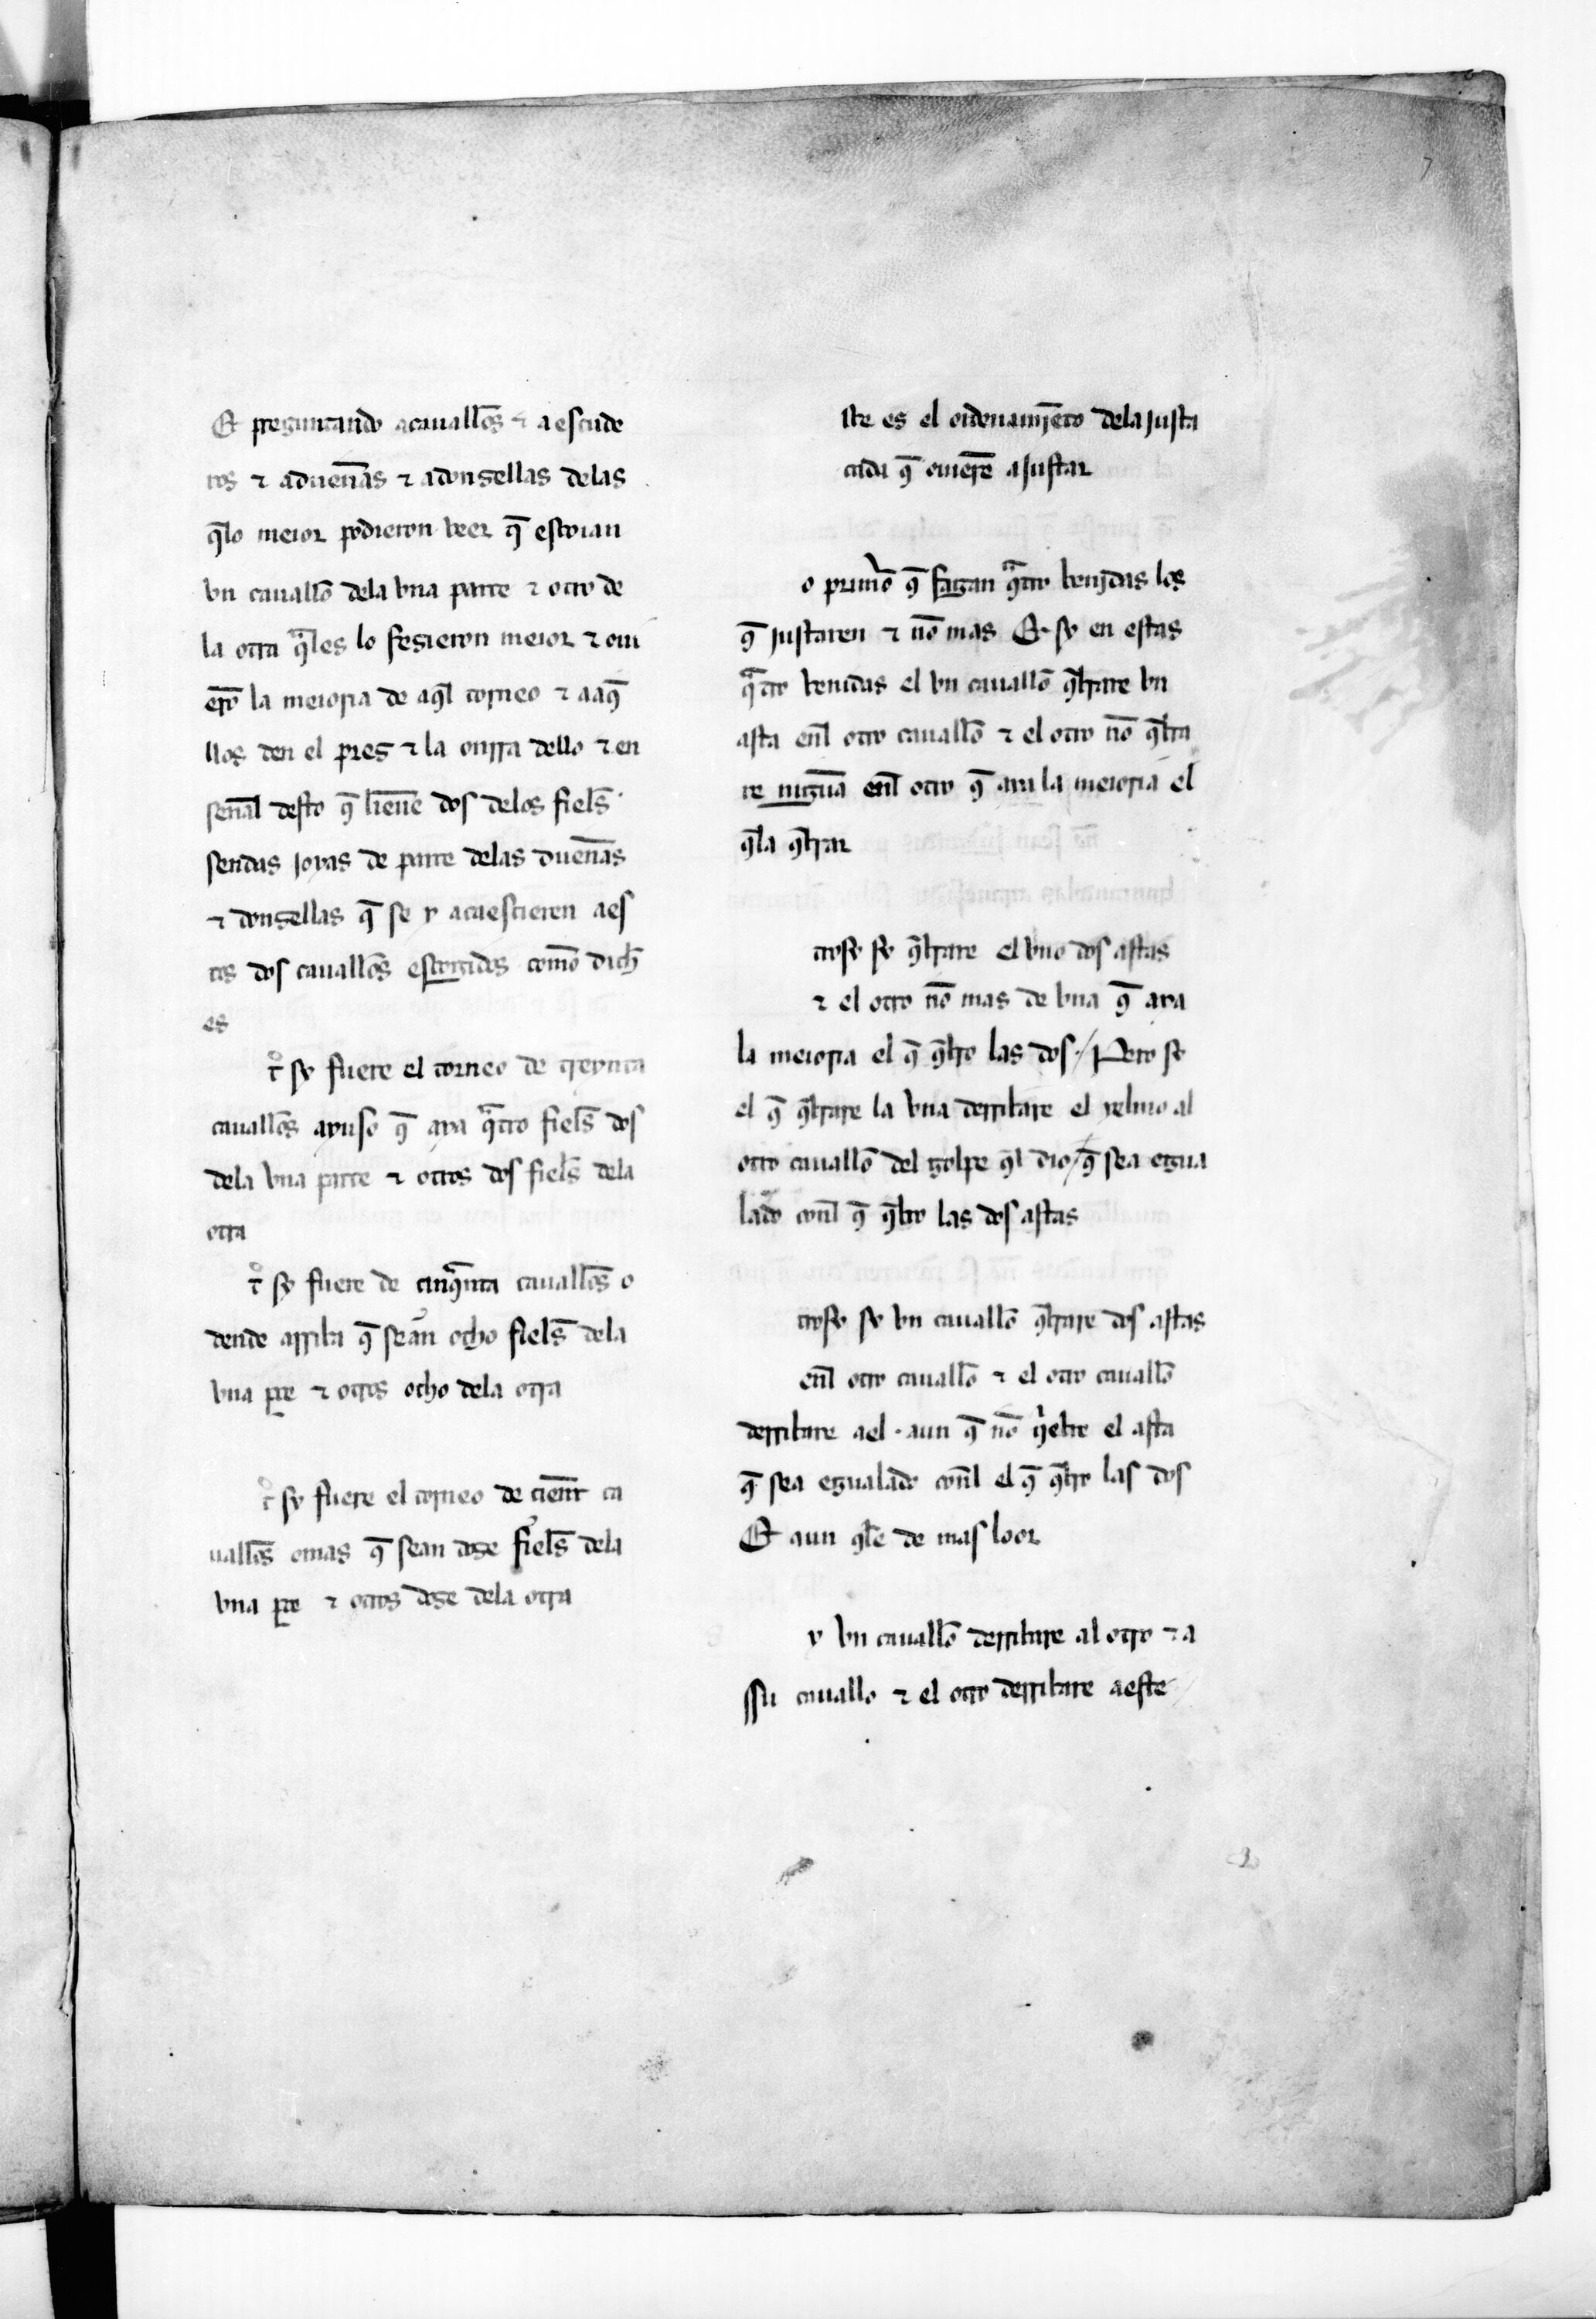 Et preguntando a cauallos̄ ⁊ a escude
ros ⁊ a duen̄as ⁊ a donsellas delas
q̄lo meior podieron veer q̄ escoian
vn cauallo᷈ dela vna parte ⁊ otro de
la otra q̄les lo fesieron meior ⁊ oui
ero᷈ la meioria de aq̄l torneo ⁊ a aq̄
llos den el pres ⁊ la onrra dello ⁊ en
sen̄al desto q̄ lieuē dos delos fiels̄
sendas joyas de parte delas duen̄as
⁊ donsellas q̄ se y acaescieren a es
tos dos cauallos̄ escogidos com̄o dich̄
es
r̊ sy fuere el torneo de treynta
cauallos̄ ayuso q̄ aya q̄tro fiels̄ dos
dela vna parte ⁊ otros dos fiels̄ dela
otra
r̊ sy fuere de cinq̄nta cauallos̄ o
dende arriba q̄ sean ocho fiels̄ dela
vna ꝑte ⁊ otros ocho dela otra
r̊ sy fuere el torneo de cient̄ ca
uallos̄ o mas q̄ sean dose fiels̄ dela
vna ꝑte ⁊ otros dose dela otra
7
ste es el ordenamj̄eto dela justa
cada q̄ ouierē a justar
o prim̄o q̄ fagan q̄tro venjdas los
q̄ justaren ⁊ no᷈ mas Et sy en estas
q̄tro venidas el vn cauallo᷈ q̄brare vn
asta enl̄ otro cauallo᷈ ⁊ el otro no᷈ q̄bra
re nigūa enl̄ otro q̄ aya la meioria el
q̄la q̄brar
trosy sy q̄brare el vno dos astas
⁊ el otro no᷈ mas de vna q̄ aya
la meioria el q̄ q̄bro las dos / Pero sy
el q̄ q̄brare la vna derribare el yelmo al
otro cauallo᷈ del golpe q̄l dio / q̄ sea egua
lado conl̄ q̄ q̄bro las dos astas
trosy sy vn cauallo᷈ q̄brare dos astas
enl̄ otro cauallo᷈ ⁊ el otro cauallo᷈
derribare a el · aun q̄ no᷈ qͥebre el asta
q̄ sea egualado conl̄ el q̄ q̄bro las dos
Et aun q̄le de mas loor
y vn cauallo᷈ derribare al otro ⁊ a
ssu cauallo ⁊ el otro derribare a este